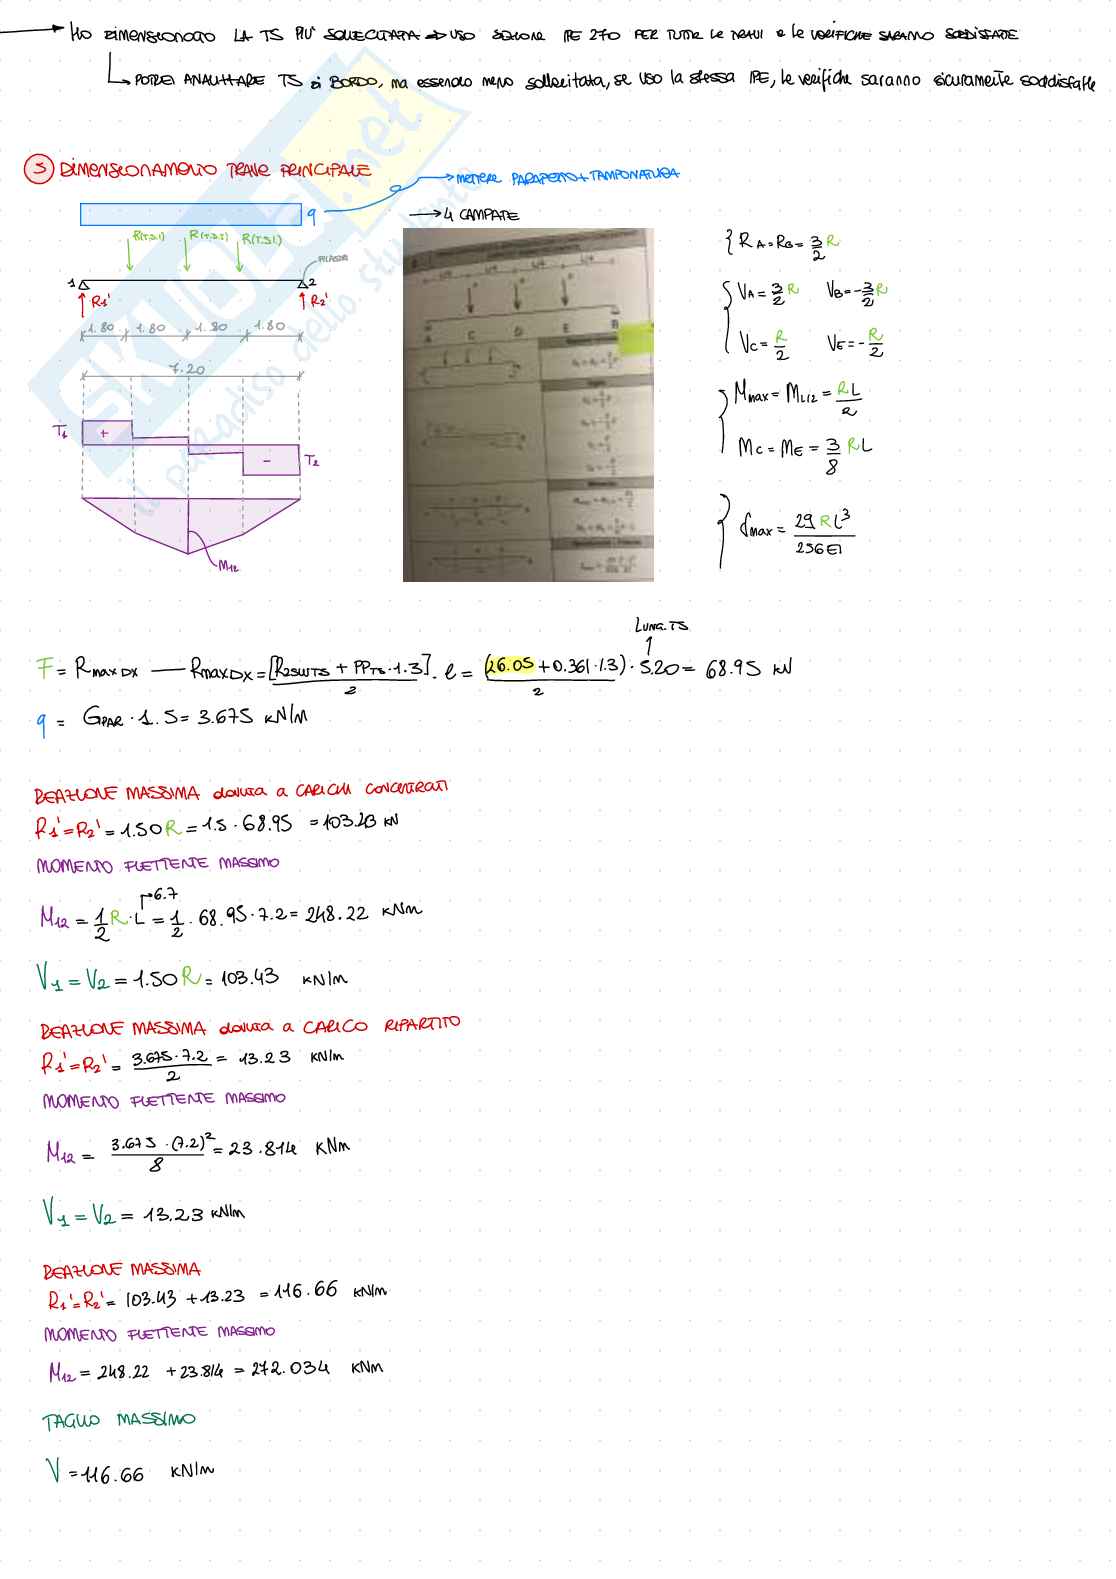 HO DIMENSIONATO LA TS PIU' SOLLECITATA → USO SEZIONE IPE 270 PER TUTTE LE TRAVI e le VERIFICHE SARANNO SODDISFATTE
POTREI ANALIZZARE TS di BORDO, ma essendo meno sollecitata, se uso la stessa IPE, le verifiche saranno sicuramente soddisfatte
5 DIMENSIONAMENTO TRAVE PRINCIPALE
q → METTERE PARAPETTO + TAMPONATURA
→ 4 CAMPATE
R(T.S.1) R(T.S.1) R(T.S.1)
PILASTRO
1 2
R1' R2'
1.80 1.80 1.80 1.80
7.20
T1 + - T2
M12
RA = RB = 3/2 R
VA = 3/2 R VB = -3/2 R
VC = R/2 VE = -R/2
Mmax = ML/2 = RL/2
MC = ME = 3/8 RL
fmax = 29 R L³ / 256 EI
LUNG. TS
F = Rmax DX — Rmax DX = [R2SLUTS + PPTS · 1.3] / 2 · l = (26.05 + 0.361 · 1.3) / 2 · 5.20 = 68.95 kN
q = GPAR · 1.5 = 3.675 kN/m
REAZIONE MASSIMA dovuta a CARICHI CONCENTRATI
R1' = R2' = 1.50 R = 1.5 · 68.95 = 103.43 kN
MOMENTO FLETTENTE MASSIMO
6.7
M12 = 1/2 R · L = 1/2 · 68.95 · 7.2 = 248.22 kNm
V1 = V2 = 1.50 R = 103.43 kN/m
REAZIONE MASSIMA dovuta a CARICO RIPARTITO
R1' = R2' = 3.675 · 7.2 / 2 = 13.23 kN/m
MOMENTO FLETTENTE MASSIMO
M12 = 3.675 · (7.2)² / 8 = 23.814 kNm
V1 = V2 = 13.23 kN/m
REAZIONE MASSIMA
R1' = R2' = 103.43 + 13.23 = 116.66 kN/m
MOMENTO FLETTENTE MASSIMO
M12 = 248.22 + 23.814 = 272.034 kNm
TAGLIO MASSIMO
V = 116.66 kN/m
SKUOLA.net
il paradiso dello studente